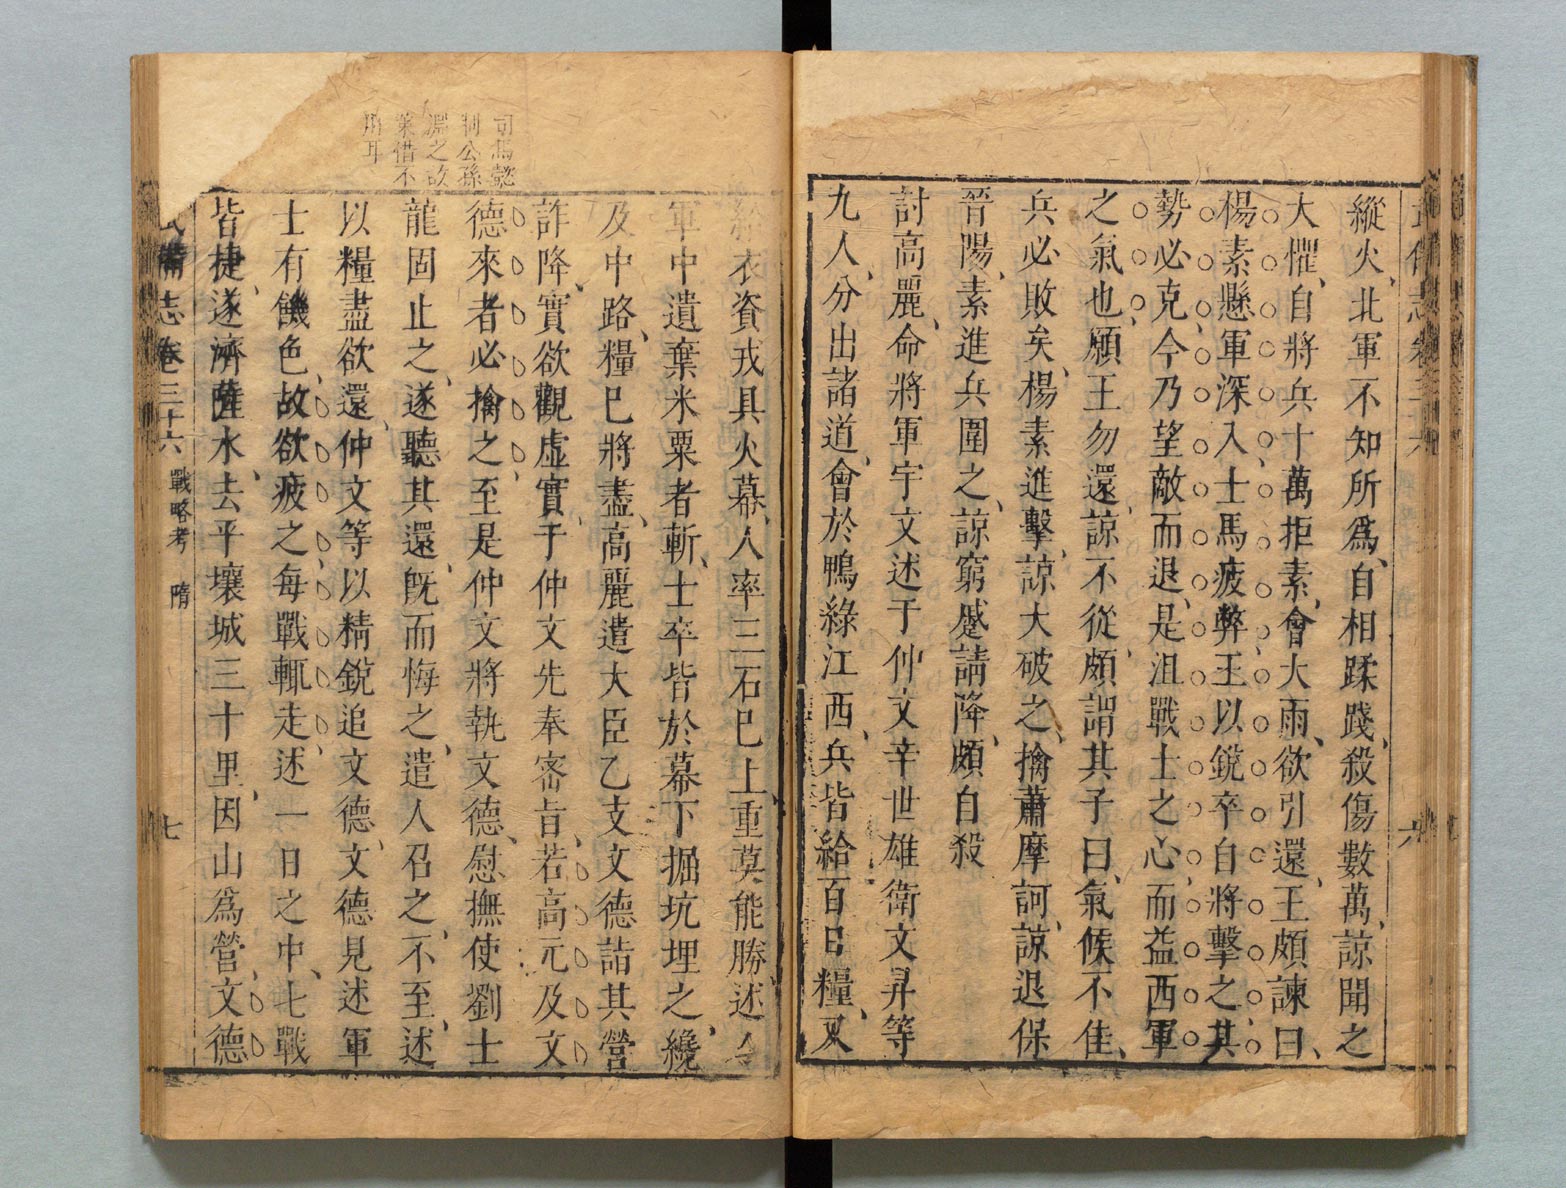 縱火、北軍不知所爲、自相蹂踐、殺傷數萬、諒聞之
大懼、自將兵十萬拒素、會大雨、欲引還、王頗諫曰、
楊素懸軍深入士馬疲弊王以銳卒自將擊之其
勢必克今乃望敵而退、是沮戰士之心、而益西軍
之氣也、願王勿還、諒不從、頗謂其子曰、氣候不佳、
兵必敗矣、楊素進擊、諒大破之、擒蕭摩訶、諒退保
晉陽、素進兵圍之、諒窮蹙請降、頗自殺
討高麗、命將軍宇文述于仲文辛世雄衛文昇等
九人、分出諸道、會於鴨綠江西、兵皆給百日糧、又
給衣資戎具火幕、人率三石已上、重莫能勝、述令
軍中遺棄米粟者斬、士卒皆於幕下掘坑埋之、纔
及中路、糧已將盡、高麗遣大臣乙支文德詣其營
詐降、實欲觀虛實、于仲文先奉密旨、若高元及文
德來者必擒之、至是仲文將執文德、慰撫使劉士
龍固止之、遂聽其還、旣而悔之、遣人召之、不至、述
以糧盡欲還、仲文等以精銳追文德、文德見述軍
士有饑色、故欲疲之、每戰輒走、述一日之中、七戰
皆捷、遂濟薩水、去平壤城三十里、因山爲營、文德
司馬懿
制公孫
淵之故
策惜不
用耳
武備志卷三十六 戰略考 隋 七
武備志卷三十六 六